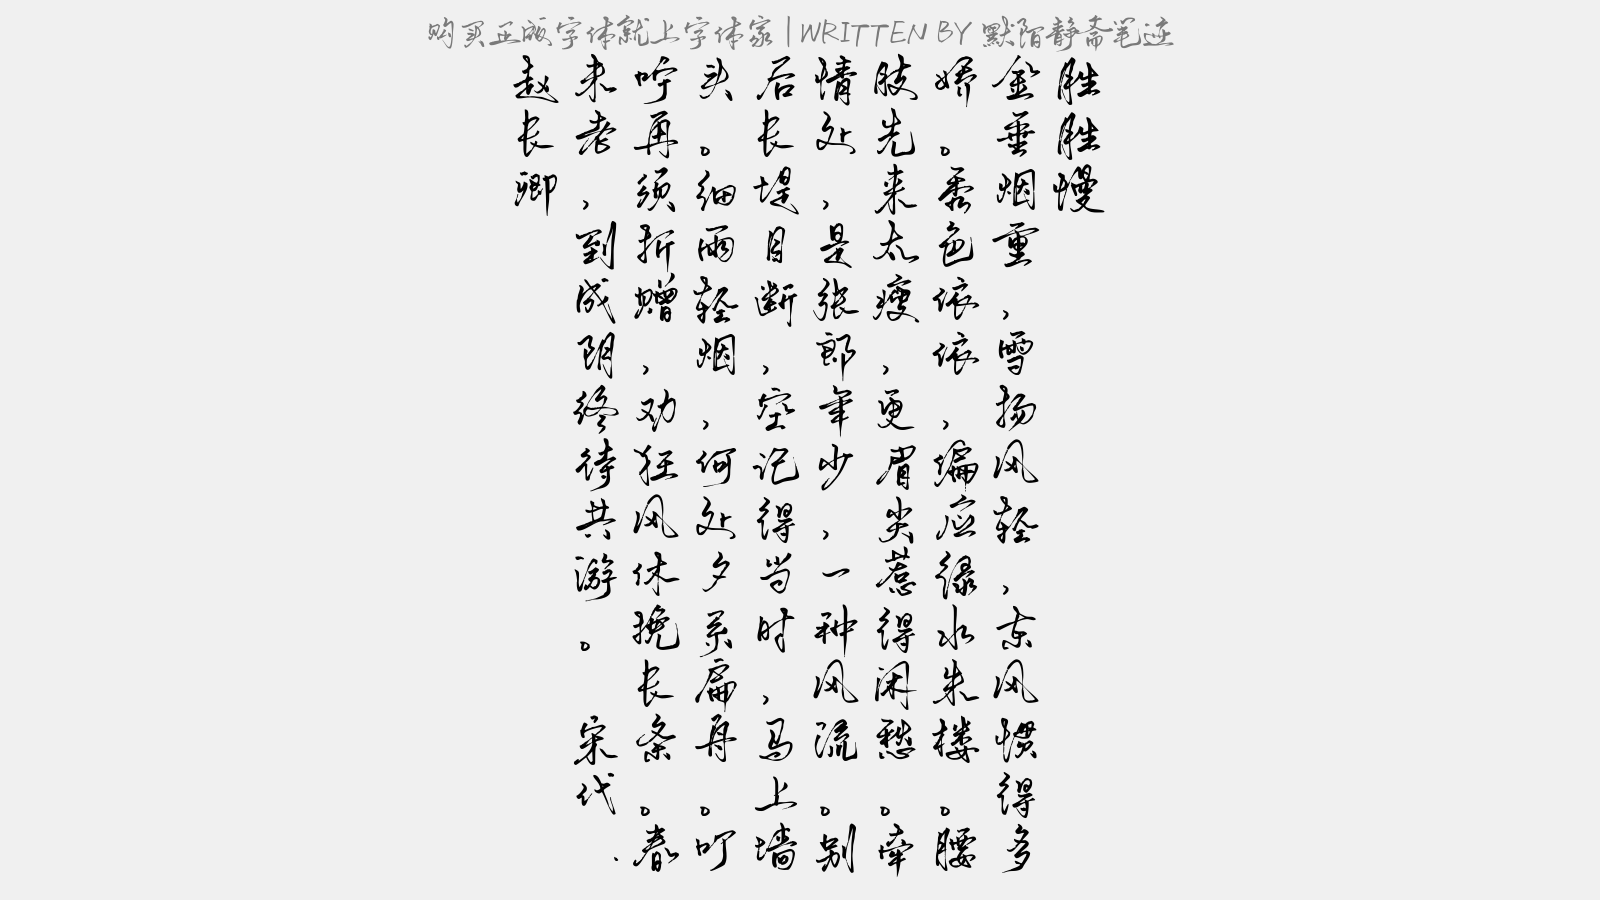 购买正版字体就上字体家 | WRITTEN BY 默陌静斋笔迹
胜胜慢
金垂烟重，雪扬风轻，东风惯得多
娇。秀色依依，偏应绿水朱楼。腰
肢先来太瘦，更眉尖惹得闲愁。牵
情处，是张郎年少，一种风流。别
后长堤目断，空记得当时，马上墙
头。细雨轻烟，何处夕系扁舟。叮
咛再须折赠，劝狂风休挽长条。春
未老，到成阴终待共游。 宋代·
赵长卿